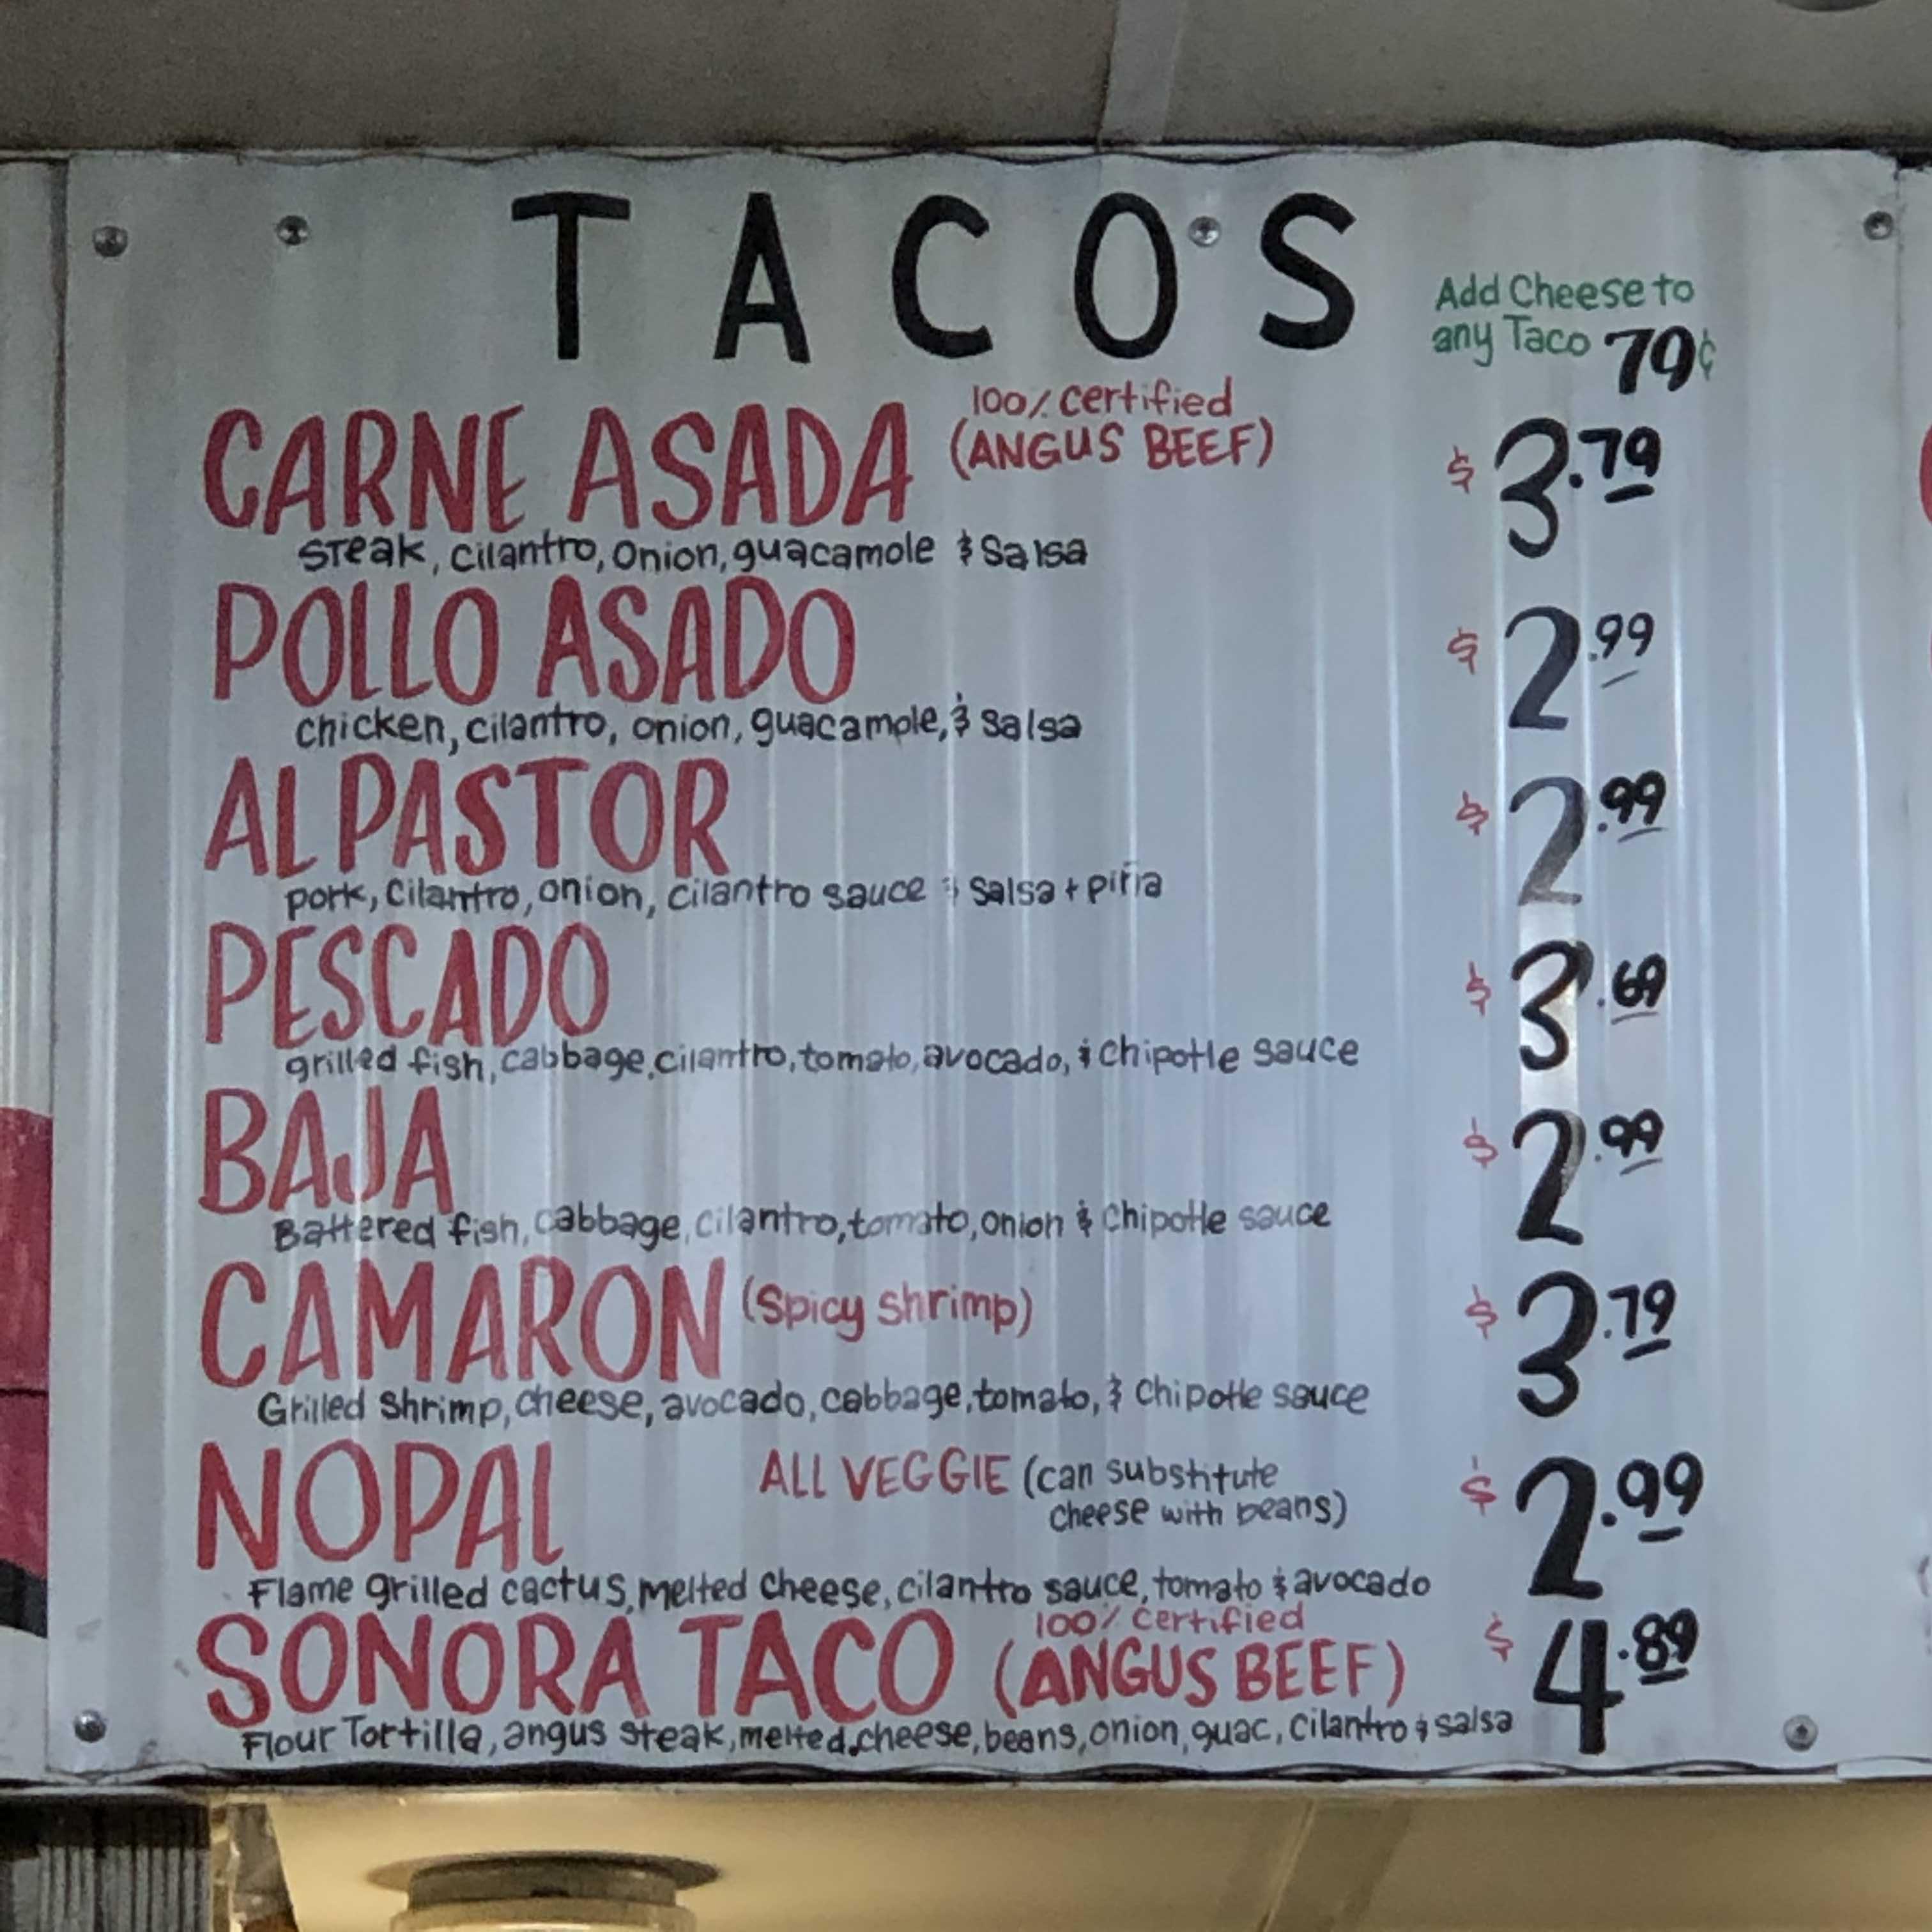 TACOS
Add Cheese to
any Taco 79¢
CARNE ASADA 100% certified
(ANGUS BEEF) $3.79
Steak, Cilantro, Onion, guacamole & Salsa
POLLO ASADO $2.99
chicken, cilantro, onion, guacamole, & Salsa
AL PASTOR $2.99
pork, Cilantro, onion, cilantro sauce & Salsa + piña
PESCADO $3.69
grilled fish, cabbage, cilantro, tomato, avocado, & chipotle sauce
BAJA $2.99
Battered fish, cabbage, cilantro, tomato, onion & chipotle sauce
CAMARON (Spicy Shrimp) $3.79
Grilled Shrimp, cheese, avocado, cabbage, tomato, & Chipotle sauce
NOPAL ALL VEGGIE (can substitute
cheese with beans) $2.99
Flame grilled cactus, melted cheese, cilantro sauce, tomato & avocado
SONORA TACO 100% certified
(ANGUS BEEF) $4.89
Flour Tortilla, angus steak, melted, cheese, beans, onion, guac, cilantro & salsa